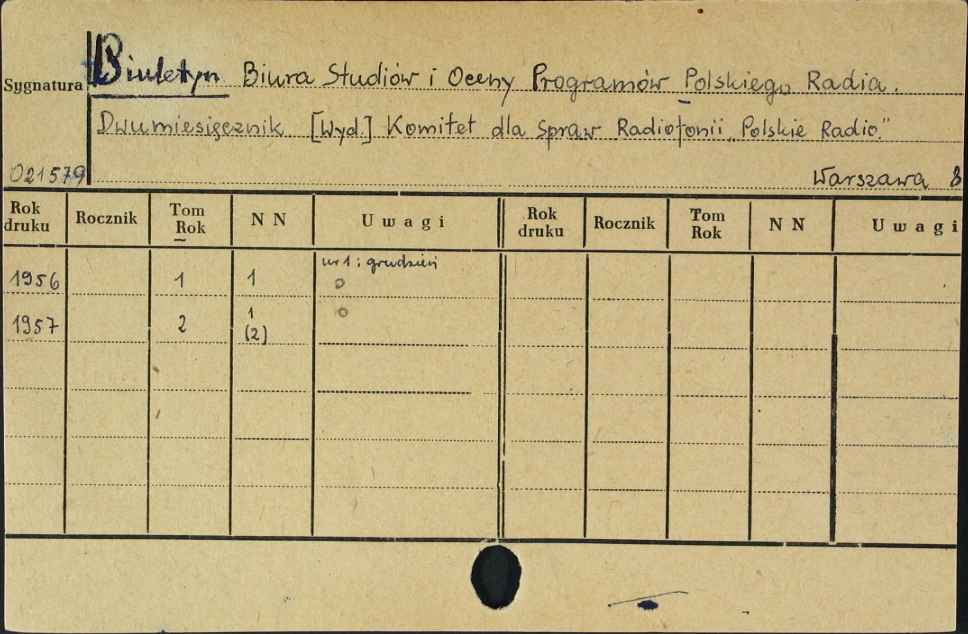 Sygnatura Biuletyn Biura Studiów i Oceny Programów Polskiego Radia.
Dwumiesięcznik [Wyd.] Komitet dla Spraw Radiofonii „Polskie Radio.”
021579 Warszawa 8
Rok druku Rocznik Tom Rok NN Uwagi Rok druku Rocznik Tom Rok NN Uwagi
nr 1: grudzień
1956 1 1
1957 2 1
(2)